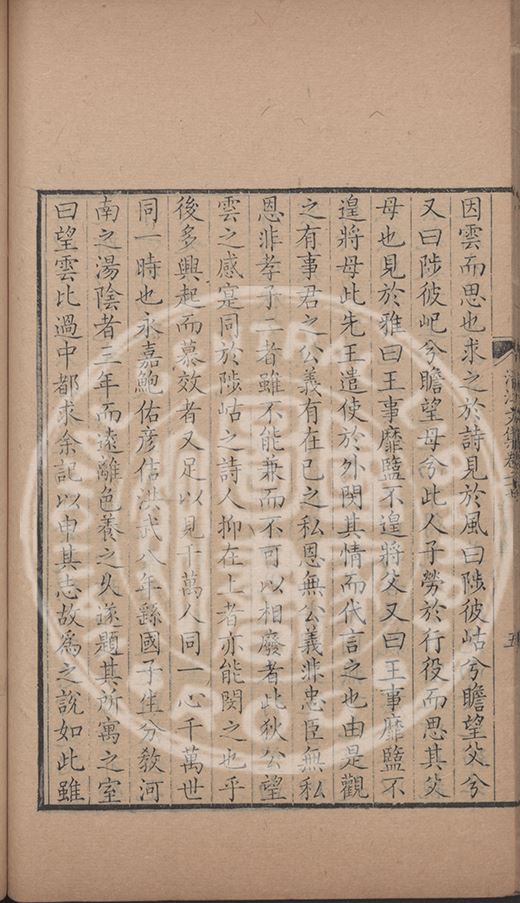 因雲而思也求之於詩見於風曰陟彼岵兮瞻望父兮
又曰陟彼屺兮瞻望母兮此人子勞於行役而思其父
母也見於雅曰王事靡盬不遑將父又曰王事靡盬不
遑將母此先王遣使於外閔其情而代言之也由是觀
之有事君之公義有在已之私恩無公義非忠臣無私
恩非孝子二者雖不能兼而不可以相廢者此狄公望
雲之感寔同於陟岵之詩人抑在上者亦能閔之也乎
後多興起而慕效者又足以見千萬人同一心千萬世
同一時也永嘉鮑佑彥佶洪武八年繇國子生分敎河
南之湯陰者三年而遠離色養之久遂題其所寓之室
曰望雲比過中都求余記以申其志故為之說如此雖